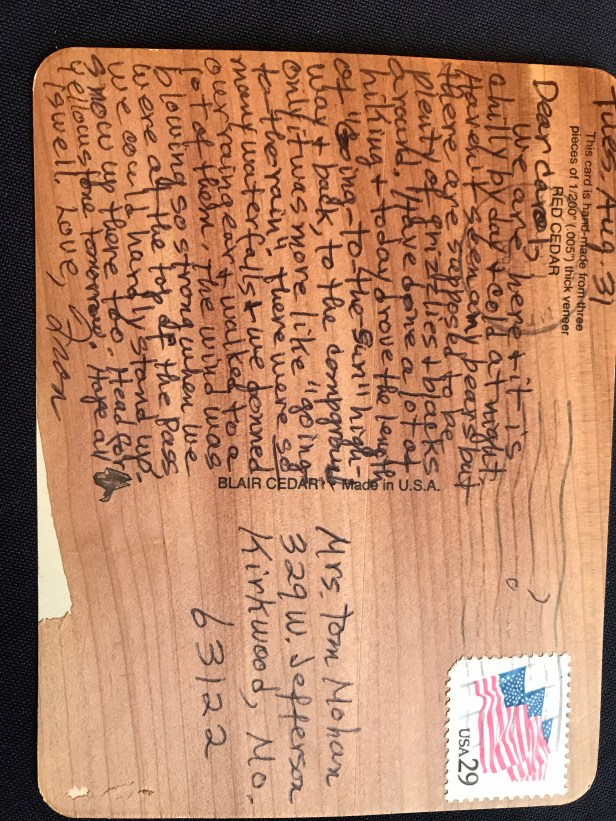 Tues Aug 31
This card is hand-made from three
pieces of 1/200" (.005") thick veneer
RED CEDAR
Dear Carol,
We are here & it is
chilly by day & cold at night.
Haven't seen any bears but
there are supposed to be
plenty of grizzlies & blacks
around. Have done a lot of
hiking & today drove the length
of "Going-to-the-Sun" high-
way & back, to the campground
only it was more like "going
to the rain". There were so
many waterfalls & we donned
our raingear & walked to a
lot of them. The wind was
blowing so strong when we
were at the top of the pass
we could hardly stand up.
Snow up there too. Head for
Yellowstone tomorrow. Hope all
is well. Love,
BLAIR CEDAR Made in U.S.A.
Mrs. Tom Mohan
329 W. Jefferson
Kirkwood, Mo.
63122
USA 29